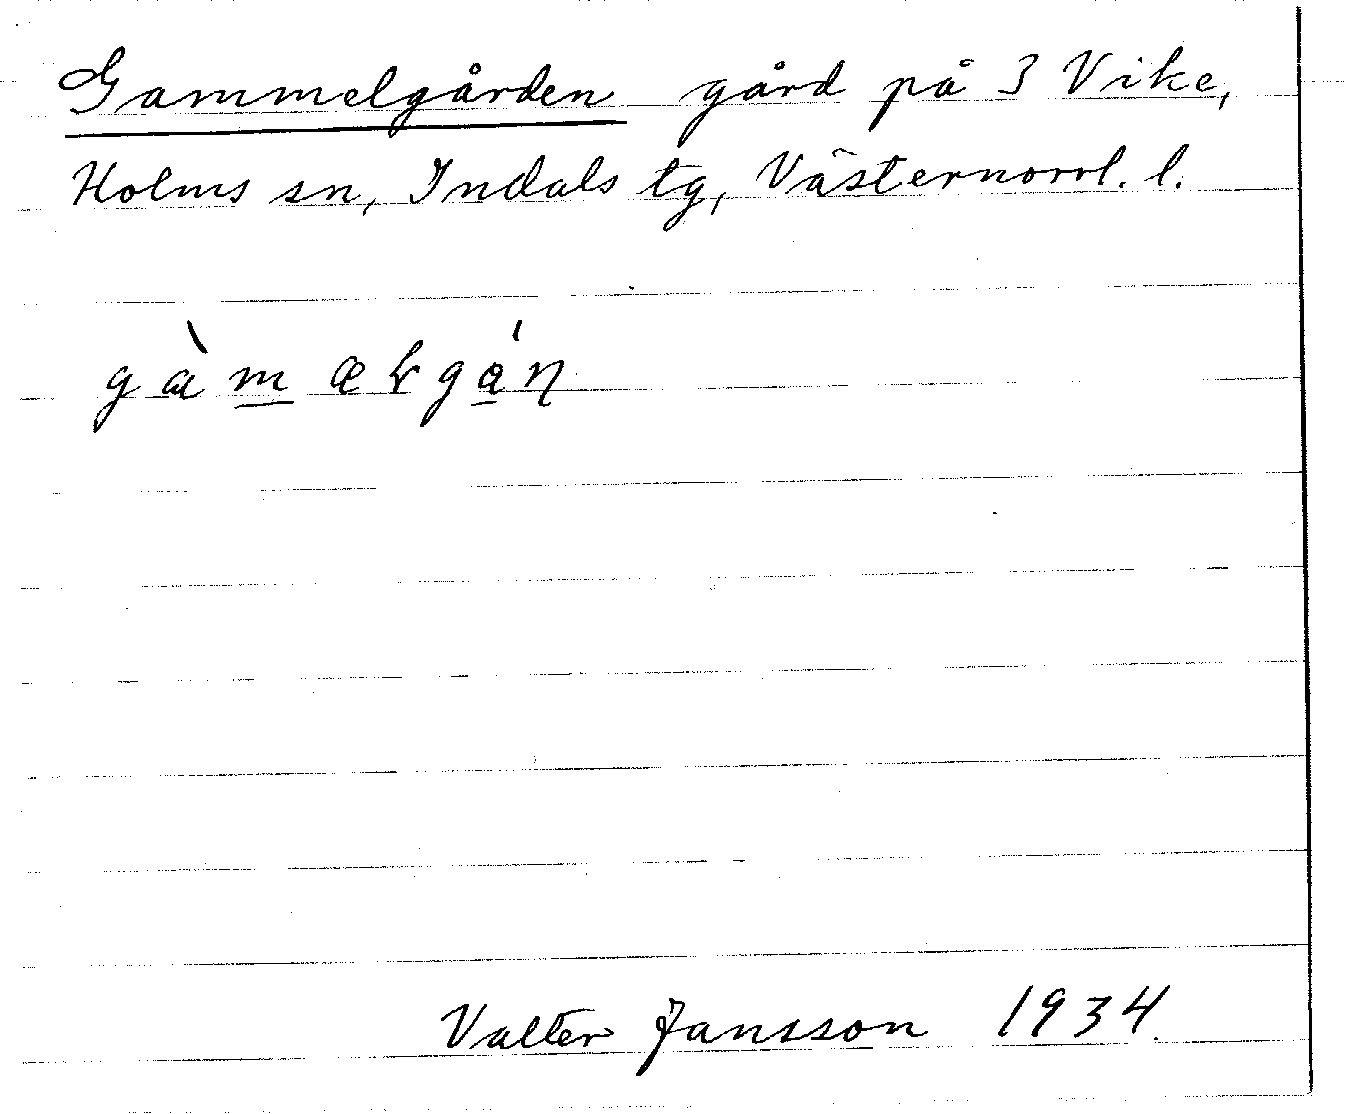 Gammelgården gård på 3 Vike,
Holms sn, Indals tg, Västernorrl. l.
gàmæɽgǻɳ
Valter Jansson 1934.